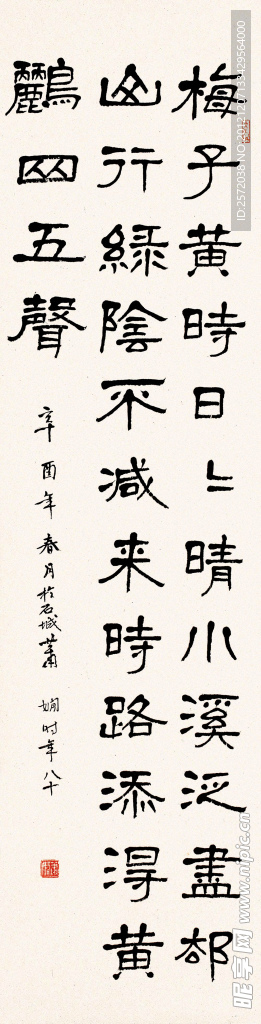 梅子黄時日〻晴小溪泛盡却
山行緑陰不減来時路添得黄
鸝四五聲
辛酉年春月於石城蕭嫻時年八十
ID:2572038 NO.20121207135429564000
昵享网 www.nipic.cn